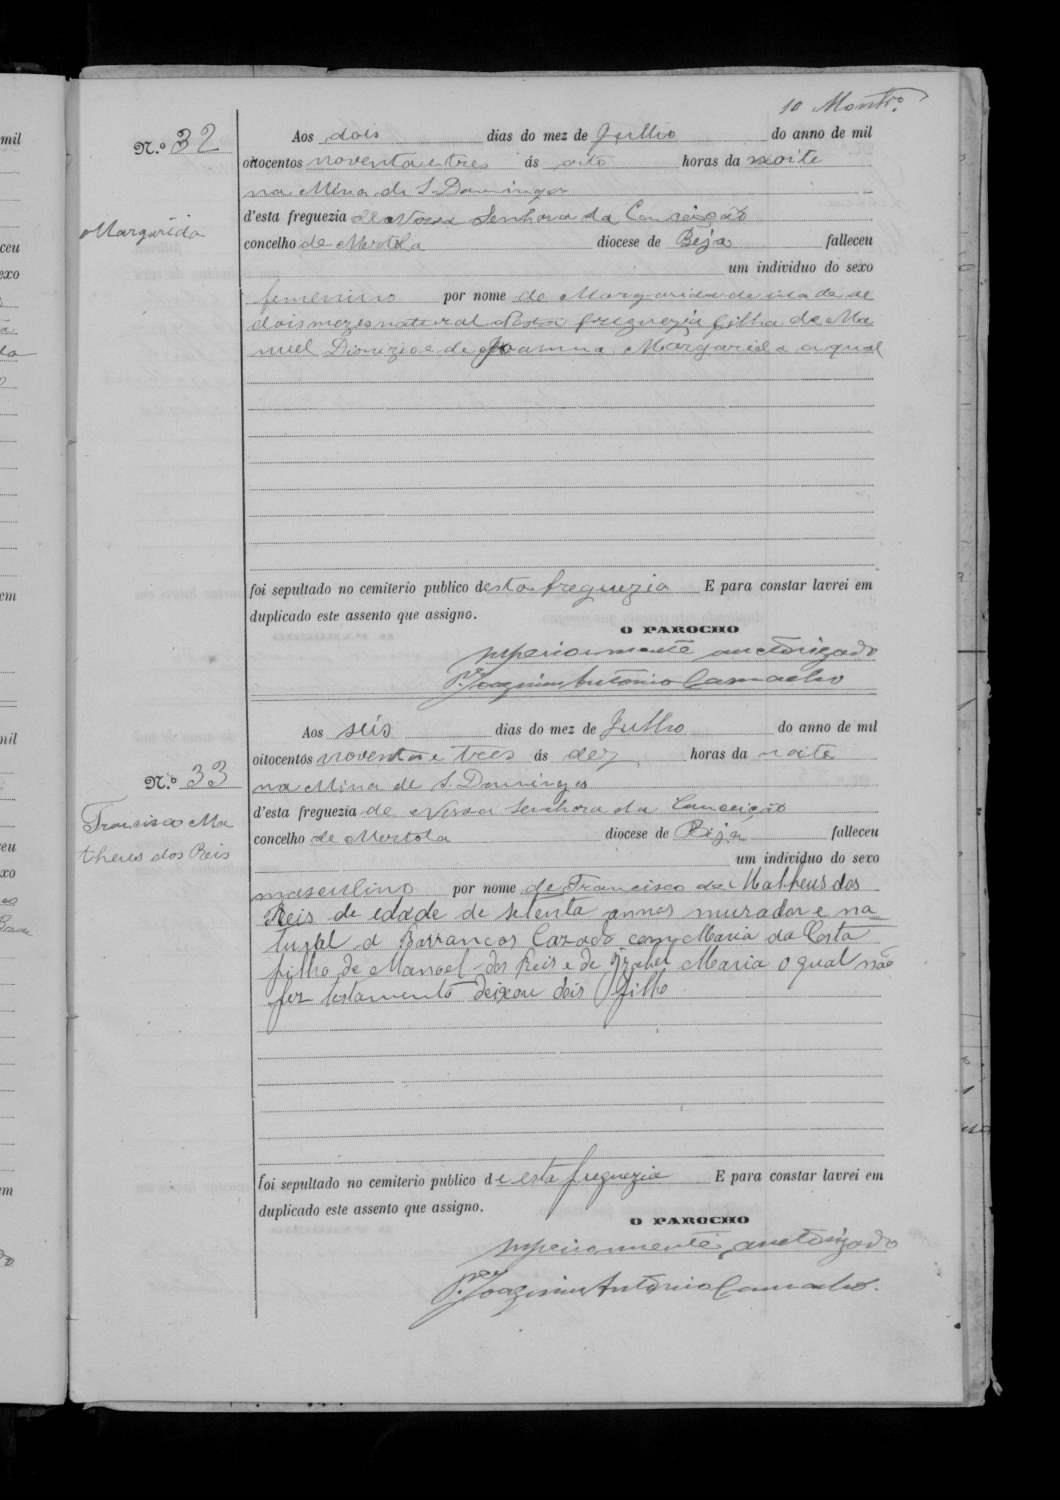 10 Montr.º
N.º 32
Margarida
Aos dois dias do mez de Julho do anno de mil
oitocentos noventa e tres ás oito horas da noite
na Mina de S. Domingos
d'esta freguezia de Nossa Senhora da Conceição
concelho de Mertola diocese de Beja falleceu
um individuo do sexo
femenino por nome de Margarida de idade de
dois mezes natural desta freguezia filha de Ma
nuel Dionizio e de Joanna Margarida a qual
foi sepultado no cemiterio publico desta freguezia E para constar lavrei em
duplicado este assento que assigno.
O PAROCHO
superiormente auctorizado
P.e Joaquim Antonio Camacho
N.º 33
Francisco Ma
theus dos Reis
Aos seis dias do mez de Julho do anno de mil
oitocentos noventa e tres ás dez horas da noite
na Mina de S. Domingos
d'esta freguezia de Nossa Senhora da Conceição
concelho de Mertola diocese de Beja falleceu
um individuo do sexo
masculino por nome de Francisco de Matheus dos
Reis de edade de setenta annos murador e na
tural d Barrancos Cazado com Maria da Costa
filho de Manoel dos Reis e de Izabel Maria o qual não
fez testamento deixou dois filho
foi sepultado no cemiterio publico de esta freguezia E para constar lavrei em
duplicado este assento que assigno.
O PAROCHO
superiormente auctorizado
P.e Joaquim Antonio Camacho.